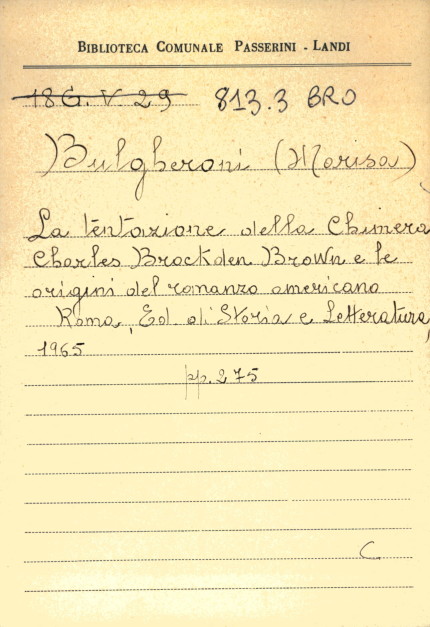 BIBLIOTECA COMUNALE PASSERINI - LANDI
18 G. V. 29 813.3 BRO
Bulgheroni (Marisa)
La tentazione della Chimera
Charles Brockden Brown e le
origini del romanzo americano
Roma, Ed. di Storia e Letteratura,
1965
pp. 275
C